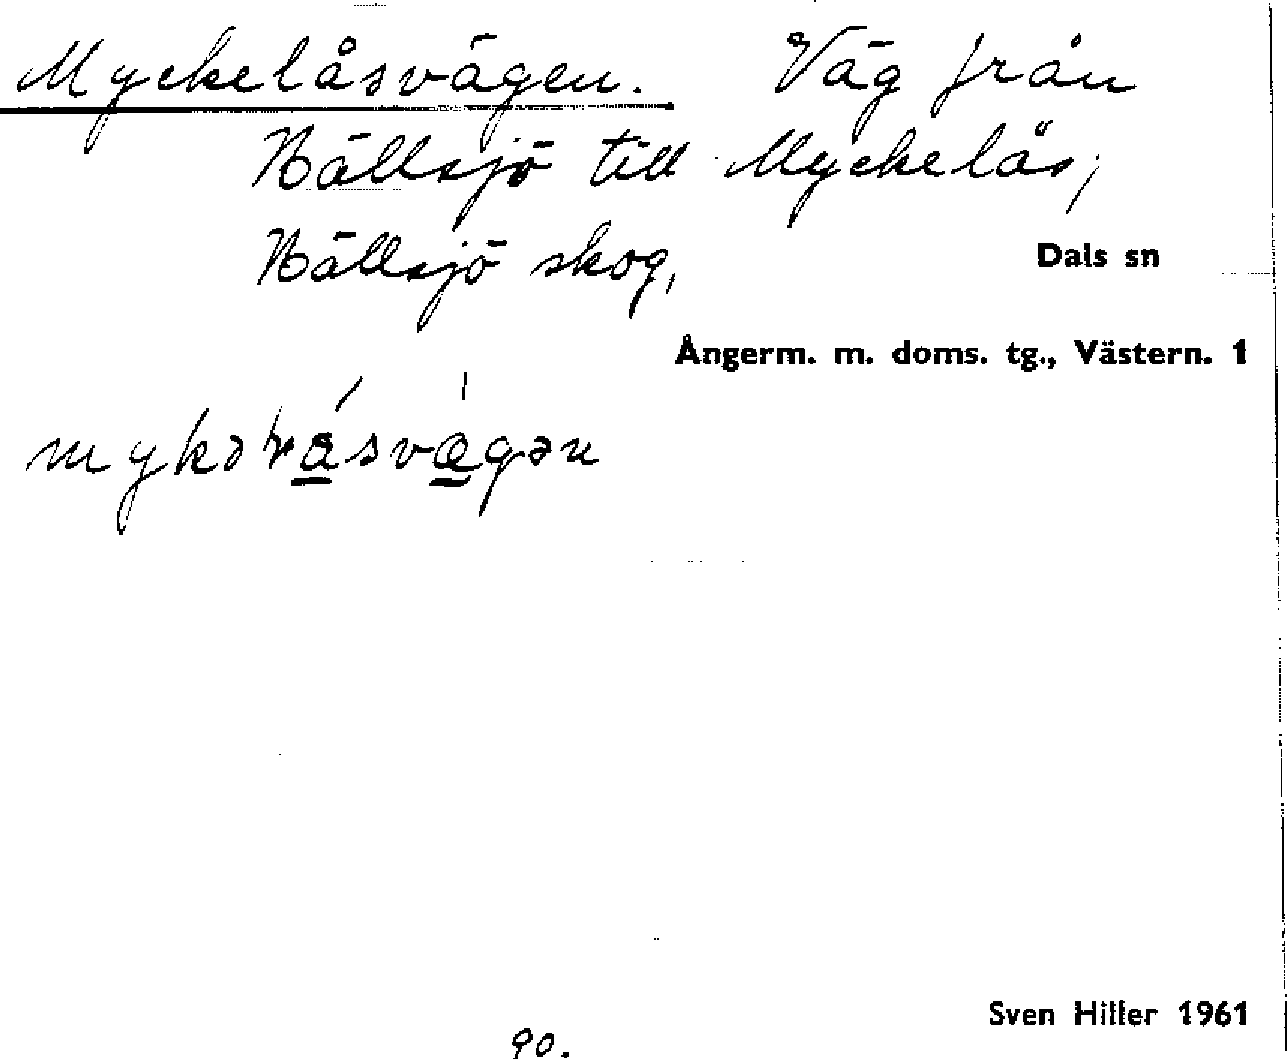 Myckelåsvägen. Väg från
Hällsjö till Myckelås,
Hällsjö skog,
Dals sn
Ångerm. m. doms. tg., Västern. 1
Sven Hiller 1961
90.